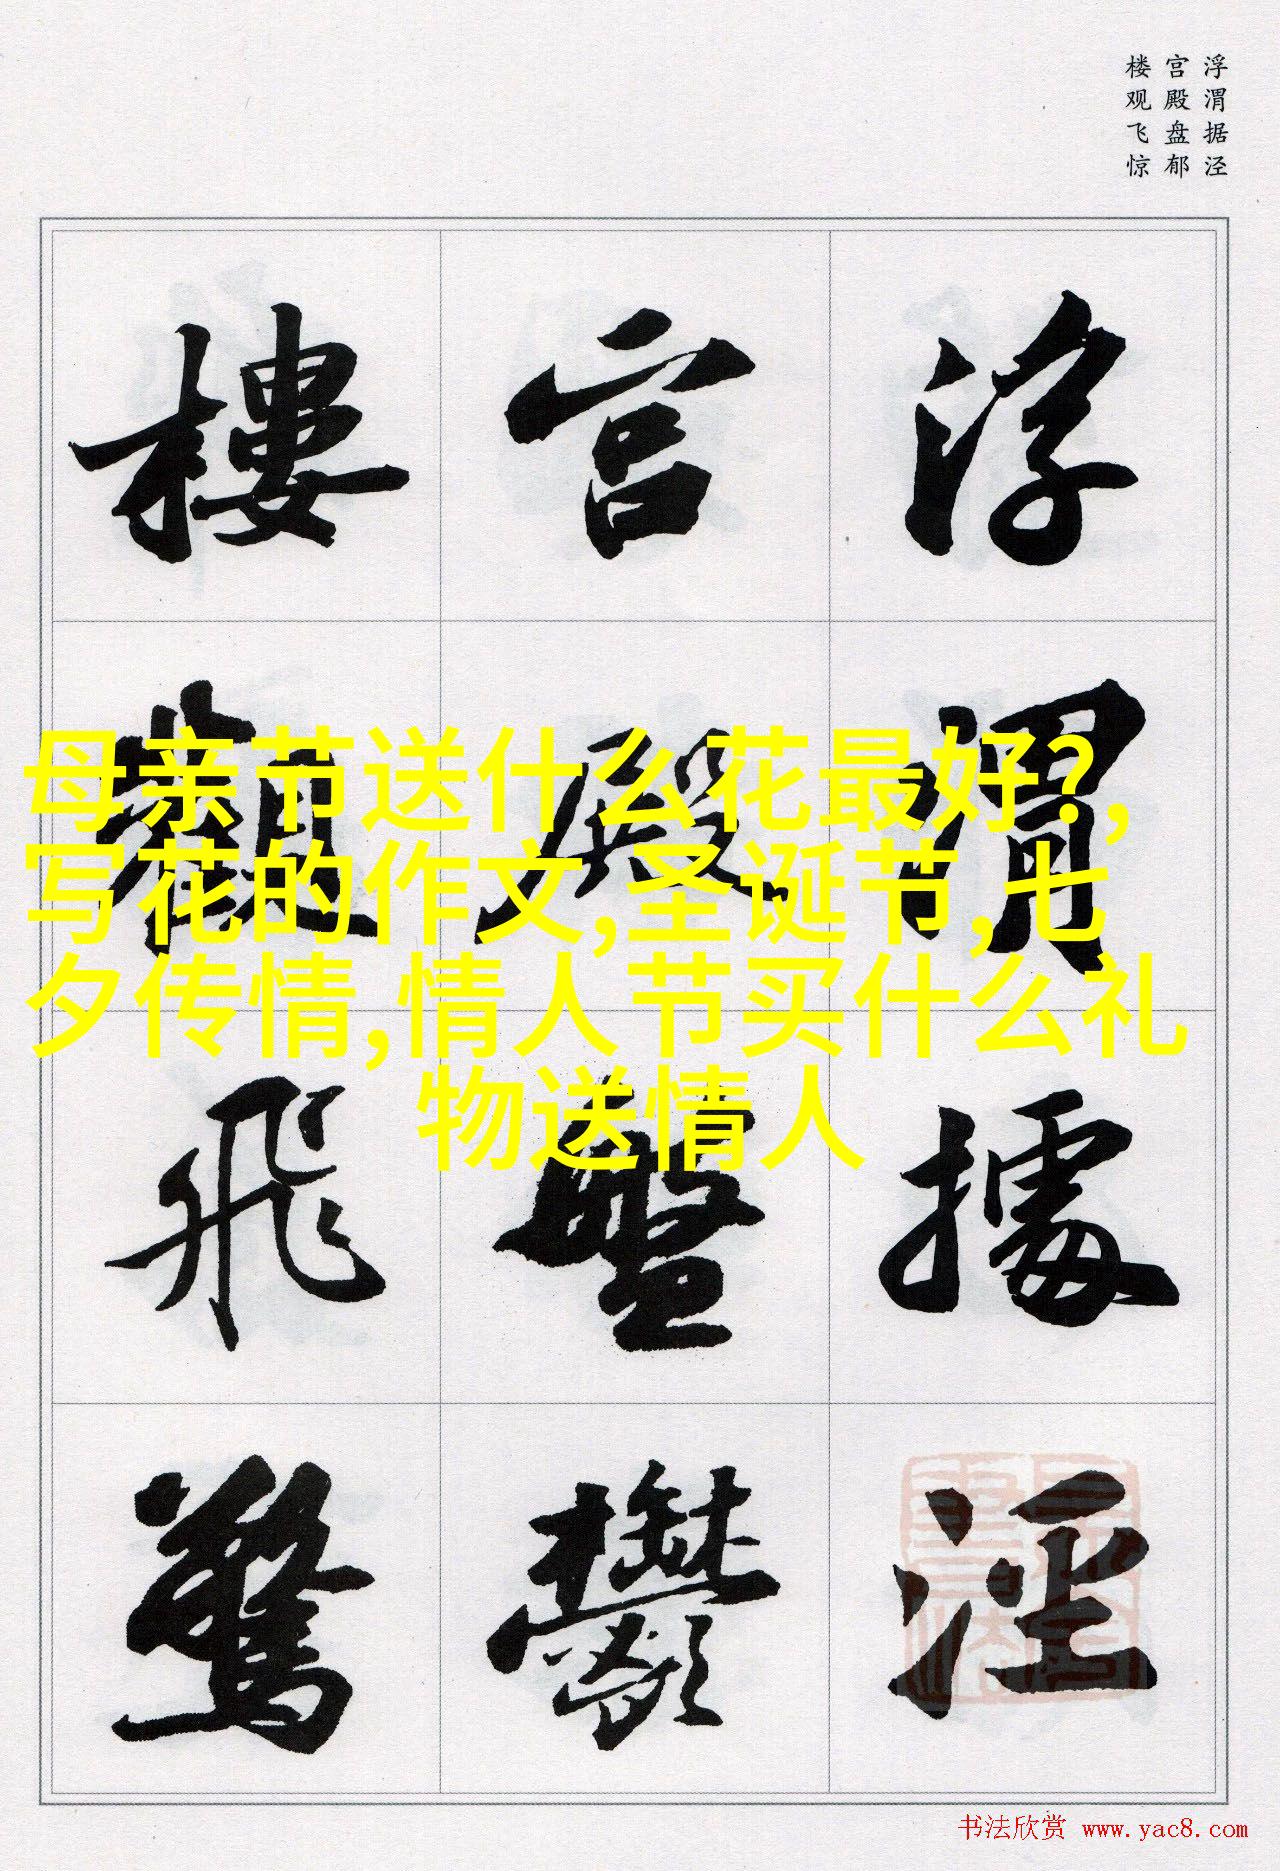 浮渭据泾
宫殿盘郁
楼观飞惊
浮渭據涇
宫殿盤鬱
樓觀飛驚
母亲节送什么花最好?,
写花的作文,圣诞节,七
夕传情,情人节买什么礼
物送情人
书法欣赏 www.yac8.com